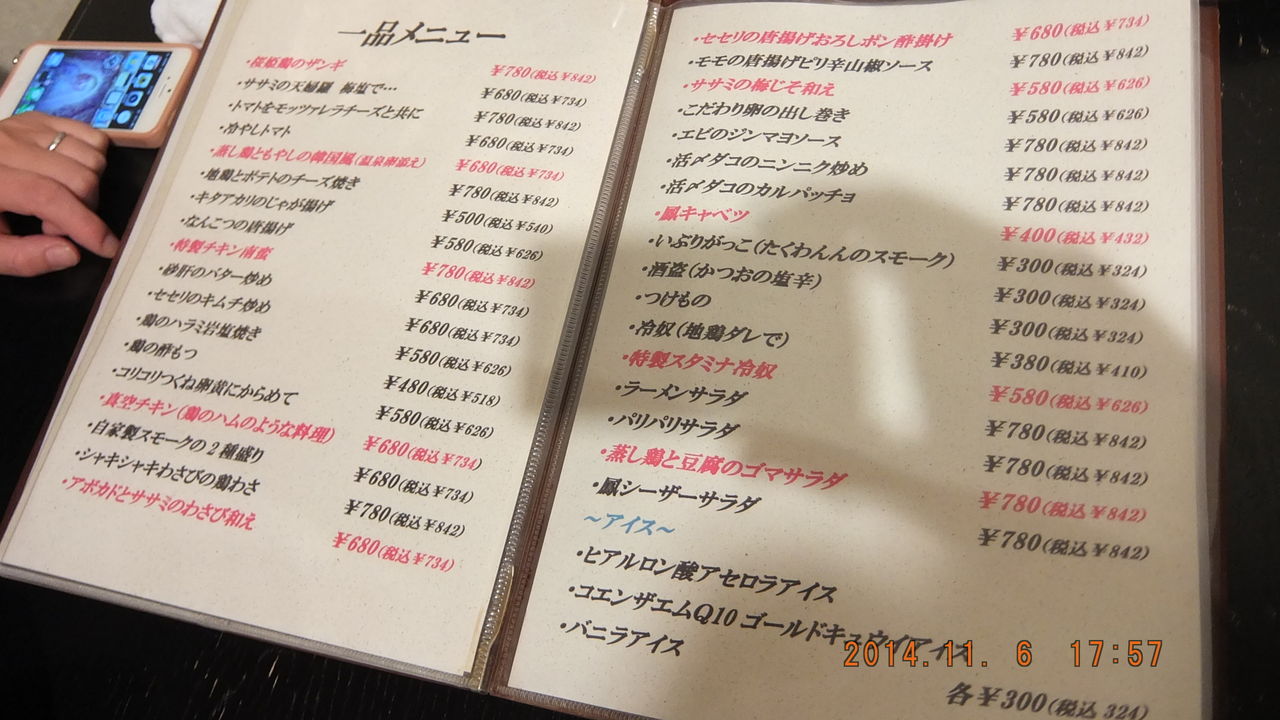 一品メニュー
・桜姫鶏のザンギ ¥780(税込¥842)
・ササミの天婦羅 梅塩で… ¥680(税込¥734)
・トマトをモッツァレラチーズと共に ¥780(税込¥842)
・冷やしトマト ¥680(税込¥734)
・蒸し鶏ともやしの韓国風(温泉卵添え) ¥680(税込¥734)
・地鶏とポテトのチーズ焼き ¥780(税込¥842)
・キタアカリのじゃが揚げ ¥500(税込¥540)
・なんこつの唐揚げ ¥580(税込¥626)
・特製チキン南蛮 ¥780(税込¥842)
・砂肝のバター炒め ¥680(税込¥734)
・セセリのキムチ炒め ¥680(税込¥734)
・鶏のハラミ岩塩焼き ¥580(税込¥626)
・鶏の酢もつ ¥480(税込¥518)
・コリコリつくね卵黄にからめて ¥580(税込¥626)
・真空チキン(鶏のハムのような料理) ¥680(税込¥734)
・自家製スモークの2種盛り ¥680(税込¥734)
・シャキシャキわさびの鶏わさ ¥780(税込¥842)
・アボカドとササミのわさび和え ¥680(税込¥734)
・セセリの唐揚げおろしポン酢掛け ¥680(税込¥734)
・モモの唐揚げピリ辛山椒ソース ¥780(税込¥842)
・ササミの梅じそ和え ¥580(税込¥626)
・こだわり卵の出し巻き ¥580(税込¥626)
・エビのジンマヨソース ¥780(税込¥842)
・活〆ダコのニンニク炒め ¥780(税込¥842)
・活〆ダコのカルパッチョ ¥780(税込¥842)
・鳳キャベツ ¥400(税込¥432)
・いぶりがっこ(たくわんんのスモーク) ¥300(税込¥324)
・酒盗(かつおの塩辛) ¥300(税込¥324)
・つけもの ¥300(税込¥324)
・冷奴(地鶏ダレで) ¥380(税込¥410)
・特製スタミナ冷奴 ¥580(税込¥626)
・ラーメンサラダ ¥780(税込¥842)
・パリパリサラダ ¥780(税込¥842)
・蒸し鶏と豆腐のゴマサラダ ¥780(税込¥842)
・鳳シーザーサラダ ¥780(税込¥842)
～アイス～
・ヒアルロン酸アセロラアイス
・コエンザエムQ10 ゴールドキュウイアイス
・バニラアイス
各¥300(税込 324)
2014.11. 6 17:57